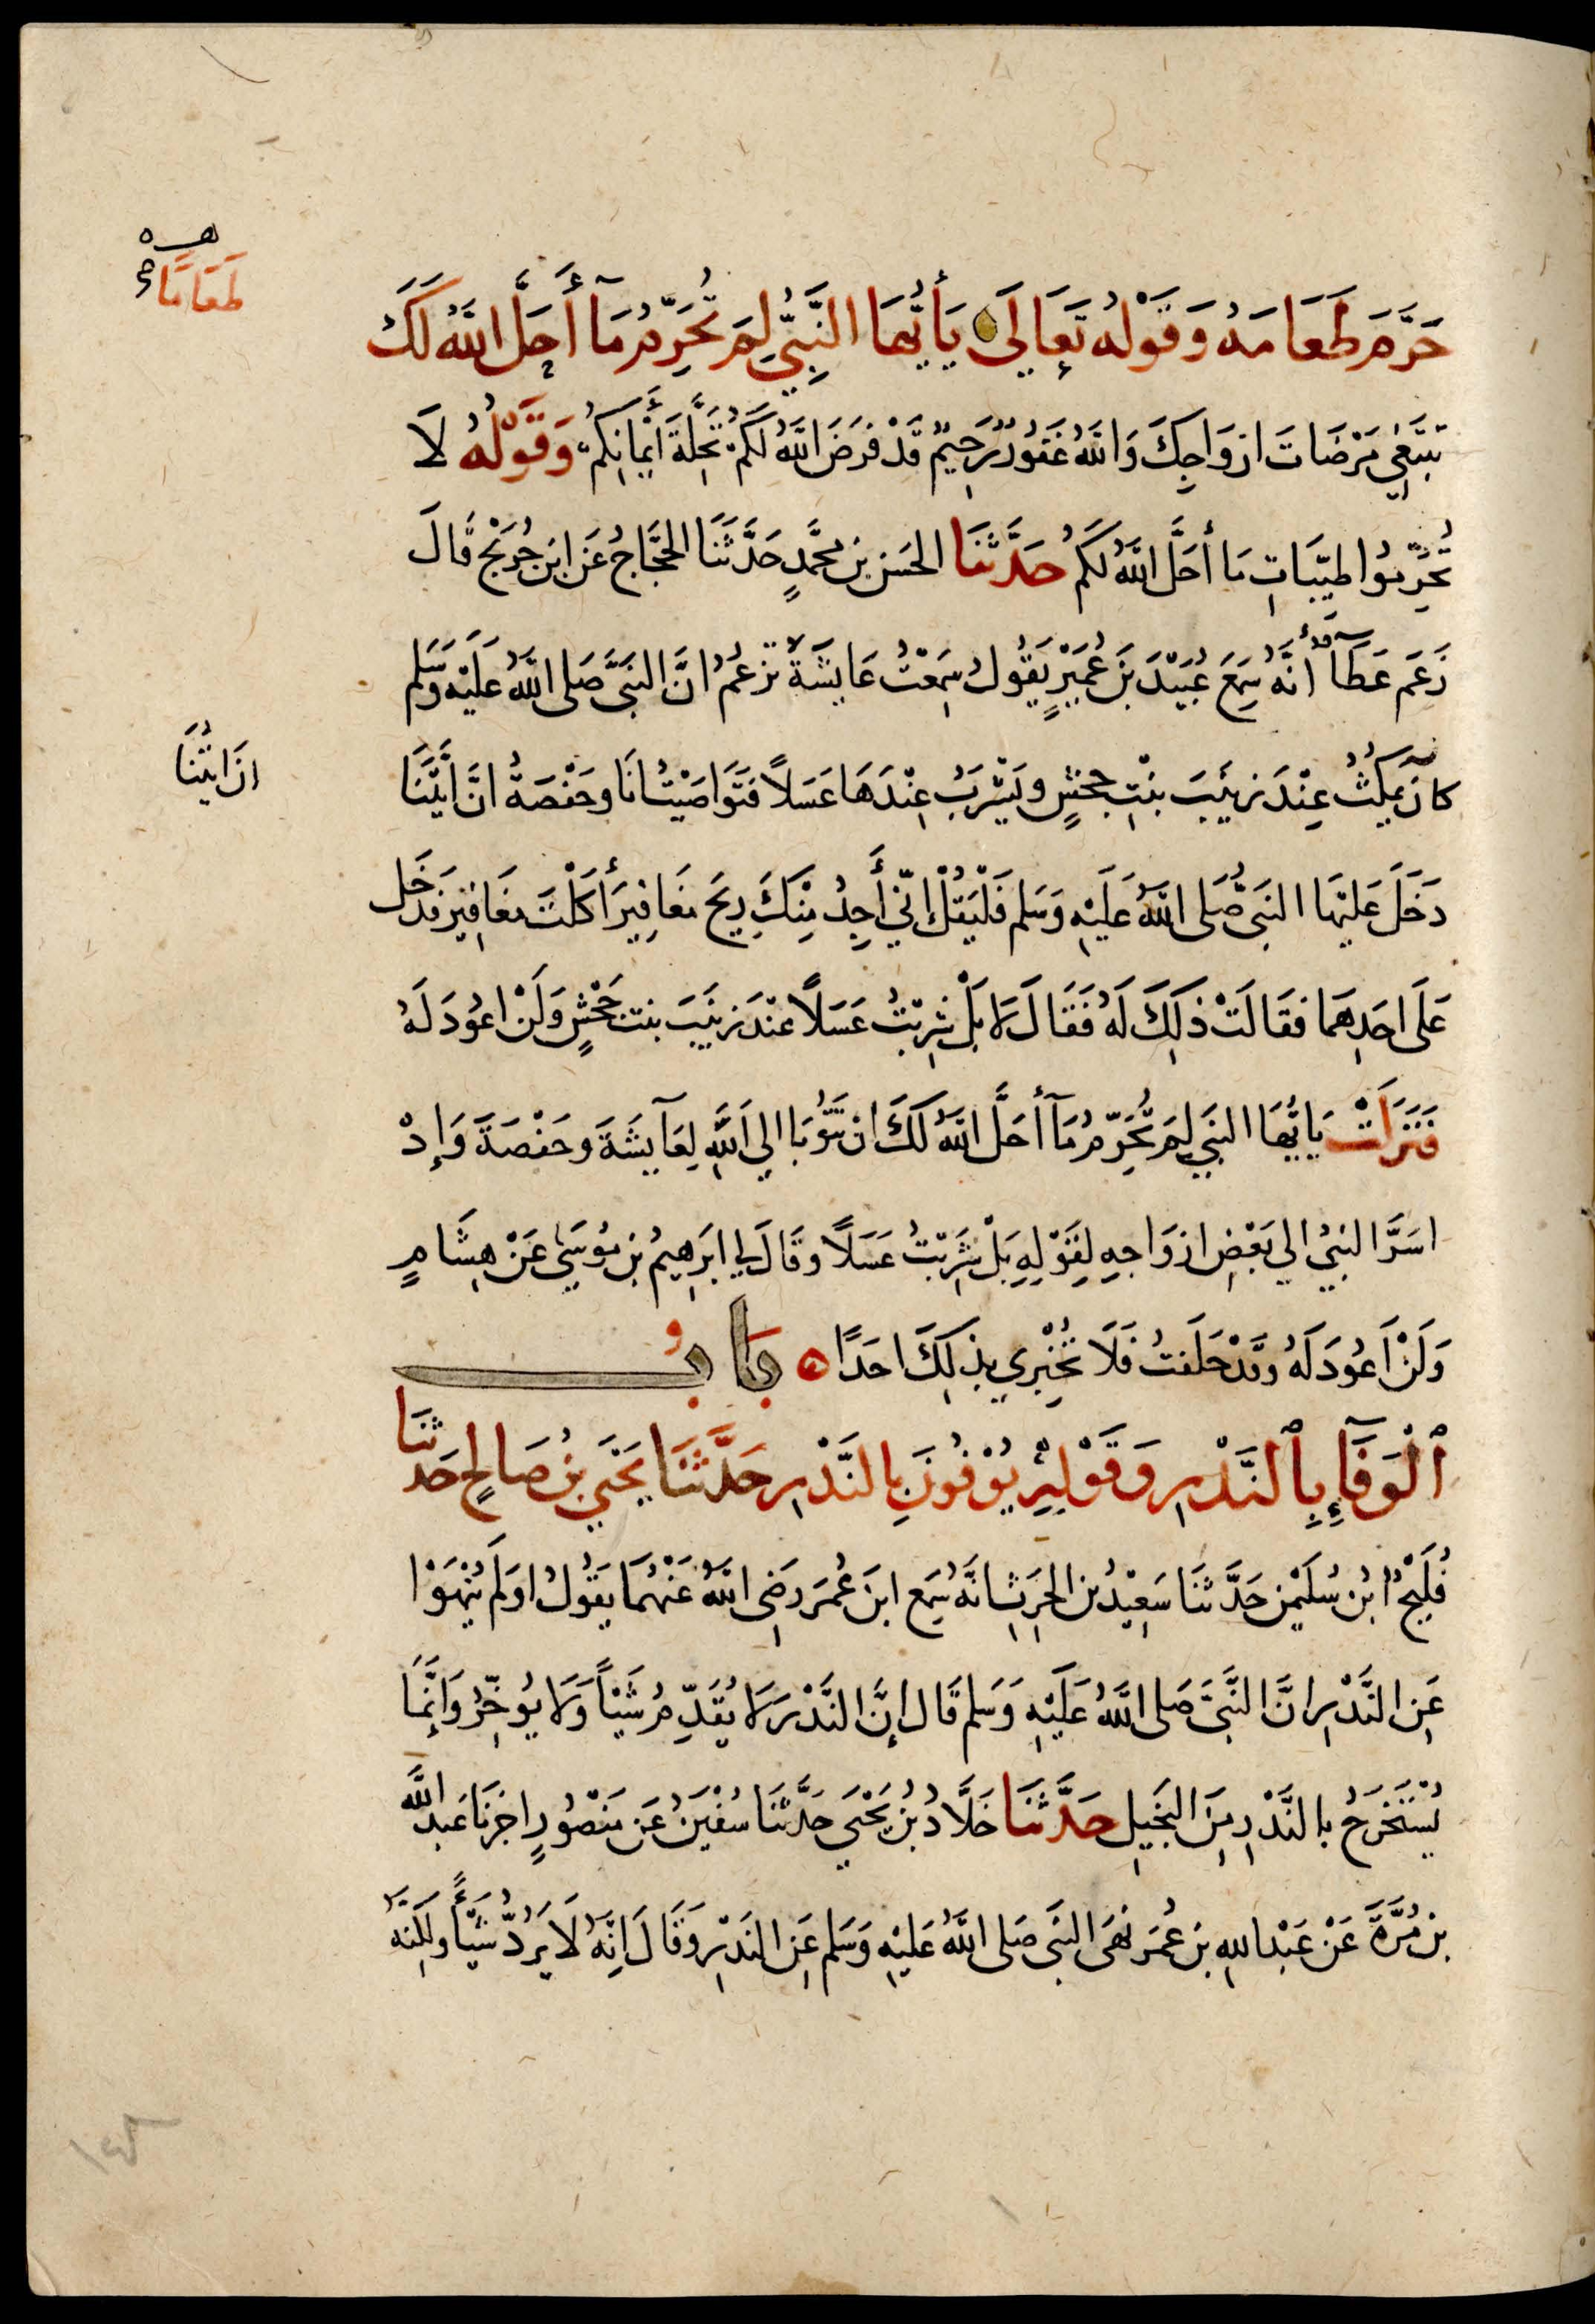 حَرَّمَ طَعَامَهُ وَقَوْلُهُ تَعَالَى يَأَيُّهَا النَّبِيُّ لِمَ تُحَرِّمُ مَآ أَحَلَّ اللَّهُ لَكَ
تَبْتَغِي مَرْضَاتَ ازْوَاجِكَ وَاللَّهُ غَفُورٌ رَحِيمٌ قَدْ فَرَضَ اللَّهُ لَكُمْ تَحِلَّةَ أَيْمَانِكُمْ وَقَوْلُهُ لَا
تُحَرِّمُوا طَيِّبَاتِ مَا أَحَلَّ اللَّهُ لَكُمْ حَدَّثَنَا الحَسَن بن محمَّدٍ حَدَّثَنَا الحَجَّاجُ عَن ابن جُرَيْج قَالَ
زَعَمَ عَطَآءٌ أَنَّهُ سَمِعَ عُبَيْدَ بنَ عُمَيْرٍ يَقُولُ سَمِعْتُ عَايِشَةَ تَزْعُمُ انَّ النَبيَّ صَلى اللَّهُ عَلَيْهِ وَسَلم
كانَ يَمكُثُ عِنْدَ زَيْنَبَ بِنْتِ جَحْشٍ وَيَشْرَبُ عِنْدَهَا عَسَلاً فَتَوَاصَيْتُ انَا وحَفْصَةُ انَّ أَيَّتَنَا
انَ ايَّتُنَا
دَخَلَ عَلَيْهَا النَبيُّ صَلى اللَّهُ عَلَيْهِ وَسَلم فَلْتَقُلْ إِنّي أَجِدُ مِنْكَ رِيحَ مَغَافِيرَ أَكَلْتَ مَغَافِيرَ فدَخَل
عَلَى احَدِهمَا فقَالَتْ ذلِكَ لَهُ فَقَالَ لَا بَلْ شَرِبْتُ عَسَلاً عنْدَ زَيْنَبَ بنت جَحْشٍ وَلَنْ اعُودَ لَهُ
فَنَزَلَتْ يَايُّهَا النَبِي لِمَ تُحَرِّمُ مَآ أَحَلَّ اللَّهُ لَكَ ان تَتُوبَا الي اللَّهِ لِعَآيشَةَ وحَفْصَةَ وَإِذْ
اسَرَّ النبيُ الي بَعْضِ ازْوَاجِهِ لِقَوْلِهِ بَلْ شَرِبْتُ عَسَلاً وقَالَ لِي ابرَهِيمُ بن مُوسَى عَنْ هِشَامٍ
وَلَنْ أَعُودَ لَهُ وقَدْ حَلَفتُ فَلَا تُخْبِرِي بِذلِكَ احَدًا بَابُ
الْوَفَآءِ بِالنَّذْرِ وَقَوْلِهِ يُوْفُونَ بِالنَّذْرِ حَدَّثَنَا يَحْيَى بنُ صَالِحٍ حَدثنَا
فُلَيْحُ ابْن سُلَيْمٰن حَدَّثَنَا سَعِيْدُ بن الحَرِث انَّهُ سَمِعَ ابنَ عُمَرَ رضِي اللَّهُ عَنْهُمَا يَقُولُ اوَلَم يُنْهَوْا
عَنِ النَّذْرِ انَّ النَّبيَّ صَلى اللَّهُ عَلَيْهِ وَسَلم قَال إِنَّ النَّذْرَ لَا يُقَدِّمُ شَيْأً وَلَا يُوخِّرُ وَإِنَّمَا
يُسْتَخْرَجُ بالنَّذْرِ مِنَ البَخِيلِ حَدَّثَنَا خَلَّادُ بْنُ يَحْيَى حَدَّثَنَا سُفْيٰنُ عَن مَنْصُورٍ اخبَرَنا عَبد اللَّه
بن مُرَّةَ عَنْ عَبْد اللهِ بن عُمَرَ نَهَى النَبي صَلى اللَّهُ عَلَيْهِ وَسَلم عَنِ النَذْرِ وَقَالَ اِنَّهُ لَا يَرُدُّ شَيْأً وَلٰكِنَّهُ
طَعَامًا